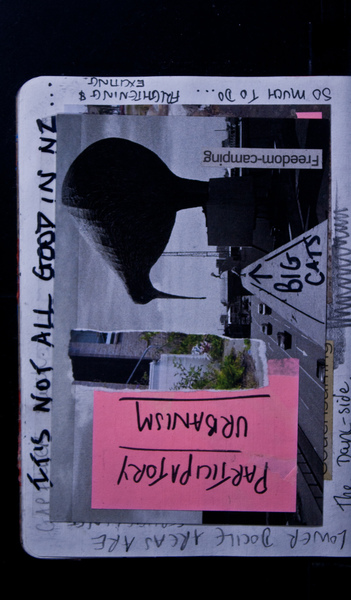 IT IS NOT ALL GOOD IN NZ...
SO MUCH TO DO... FRIGHTENING &
EXCITING
Freedom-camping
↑ BIG
CATS
PARTICIPATORY
URBANISM
The Dark-side
LOWER DOCILE AREAS ARE